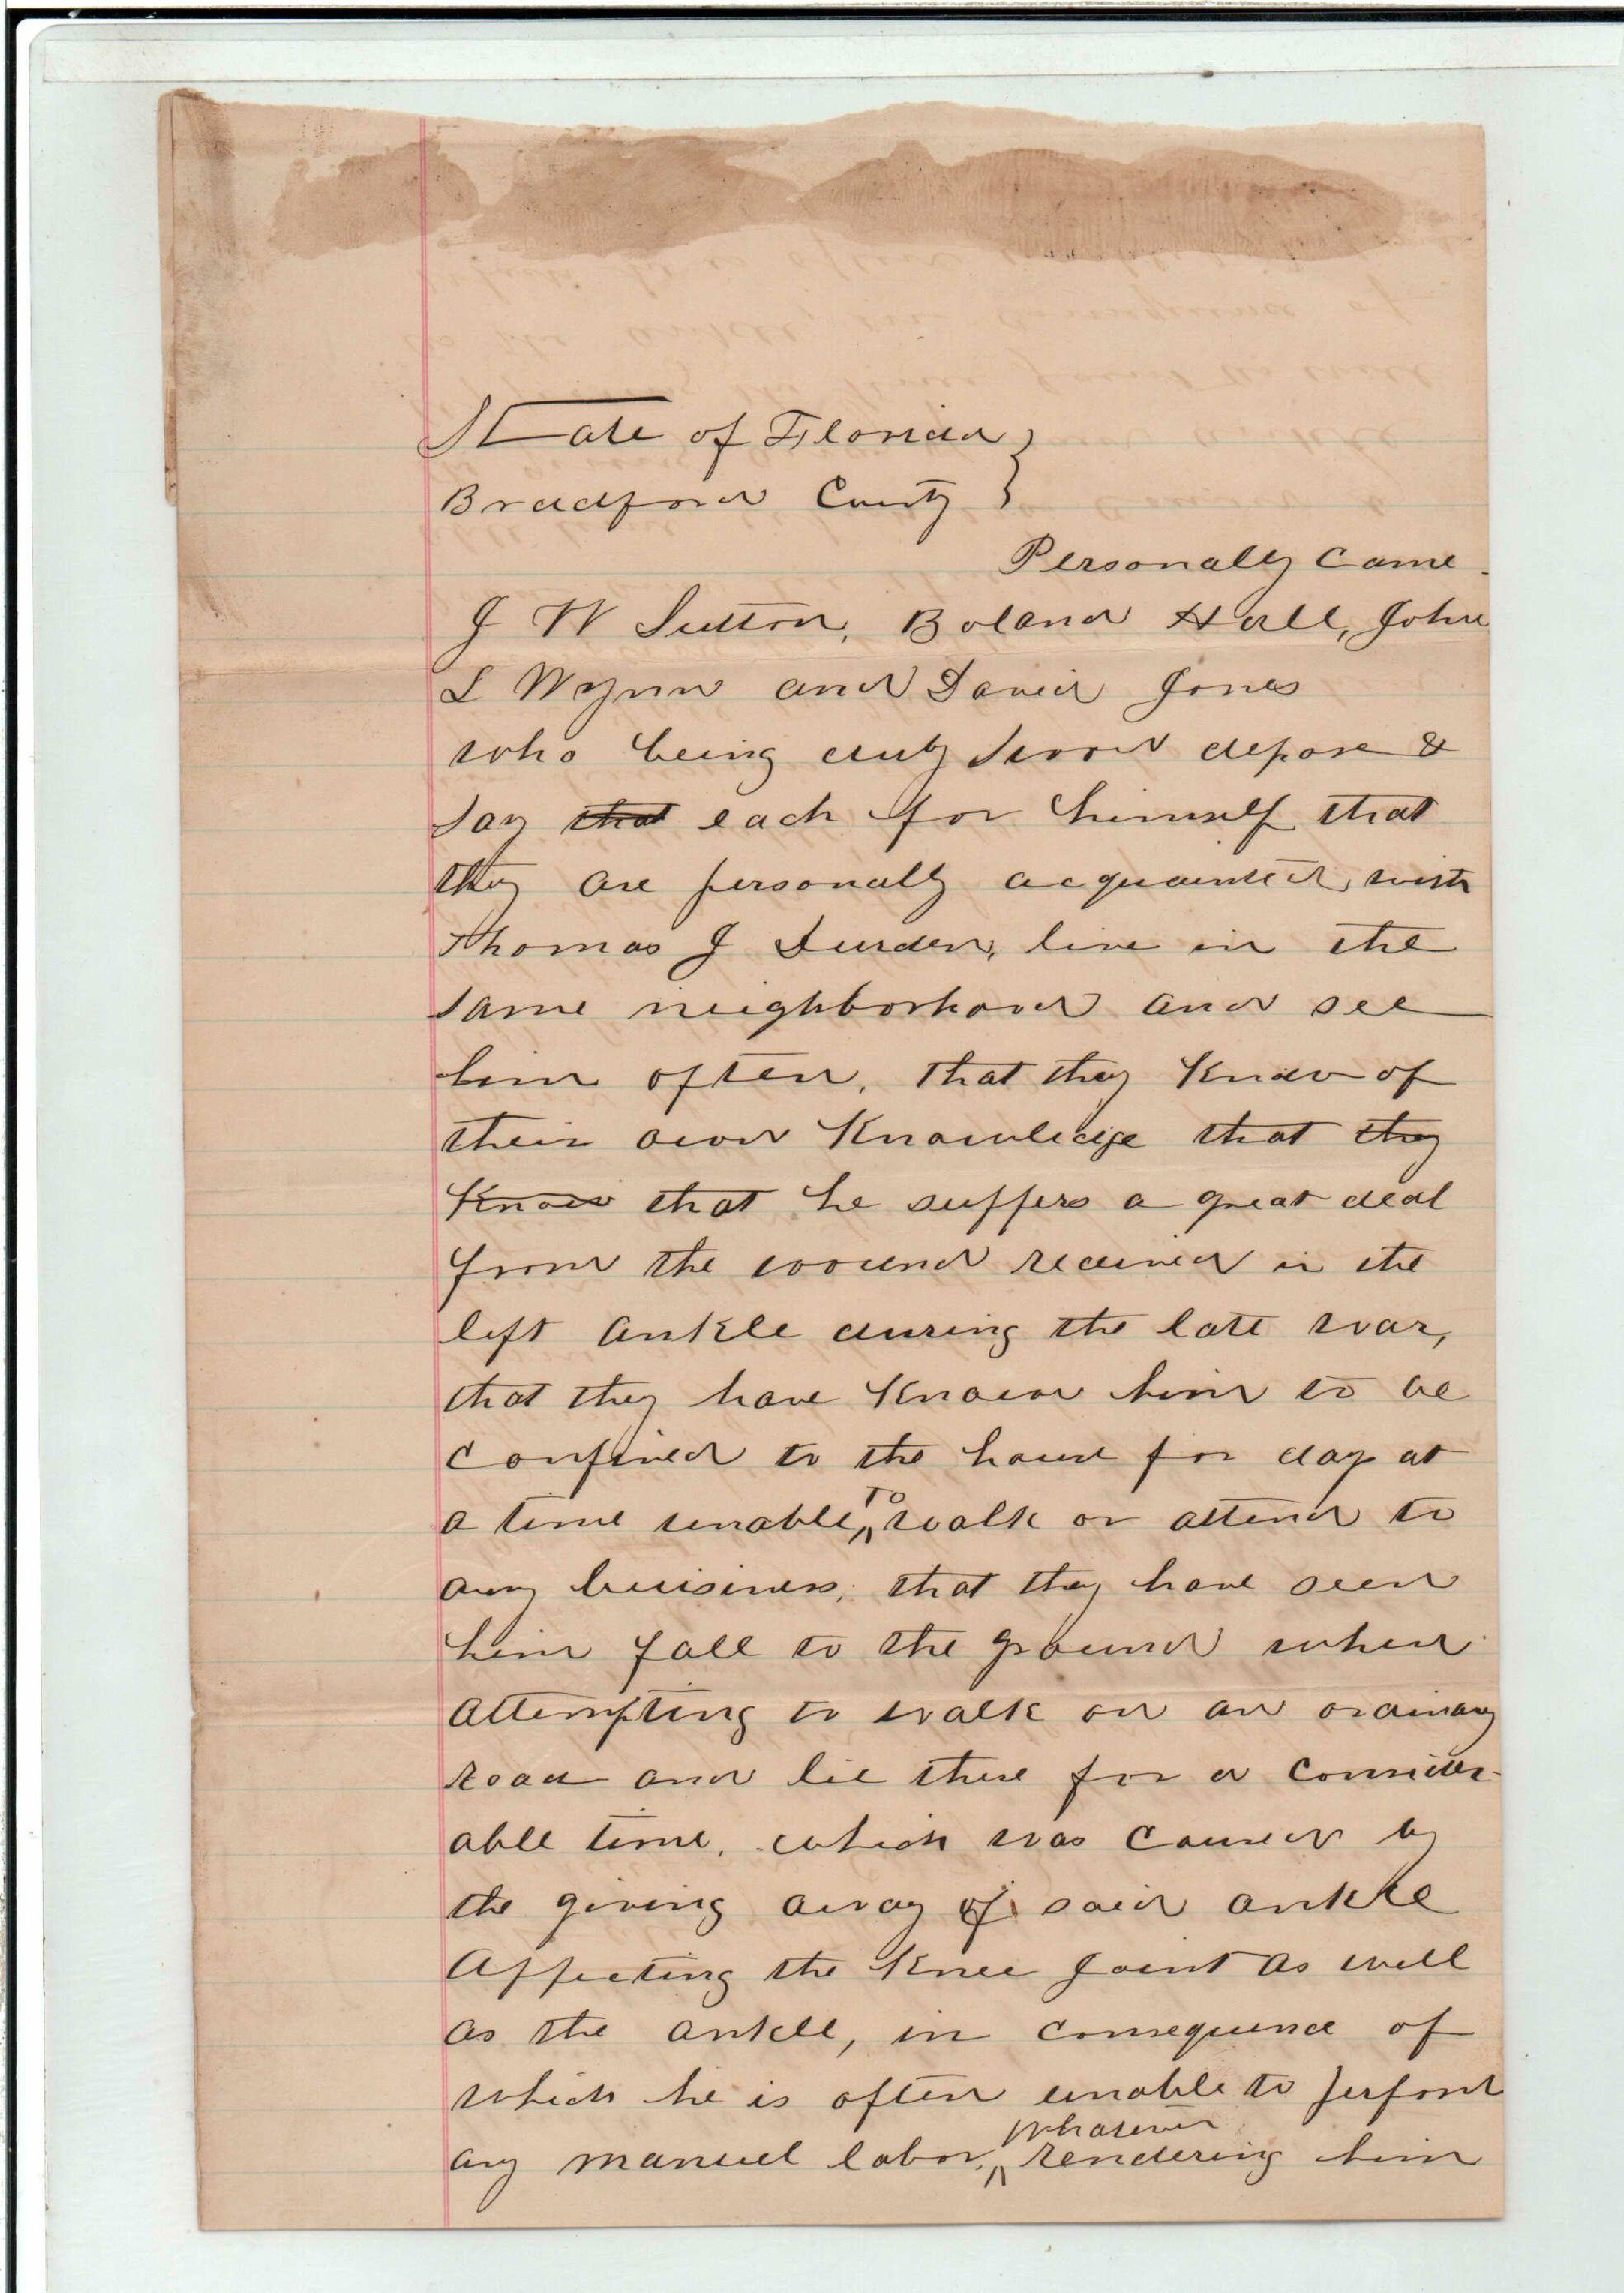 State of Florida }
Bradford County }
Personally Came
J W Sutton, Boland Hall, John
L Wynn and David Jones
who being duly sworn depose &
say that each for himself that
they are personally acquainted with
Thomas J Durden, live in the
same neighborhood and see
him often, that they know of
their own Knowledge that they
Know that he suffers a great deal
from the wound received in the
left ankle during the late war,
that they have Known him to be
confined to the house for days at
a time unable to walk or attend to
any buisiness, that they have seen
him fall to the ground when
attempting to walk on an ordinary
road and lie there for a consider-
able time, which was caused by
the giving away of said ankle
Affecting the Knee Joint as well
as the ankle, in consequence of
which he is often unable to perform
any manuel labor, whatever rendering him